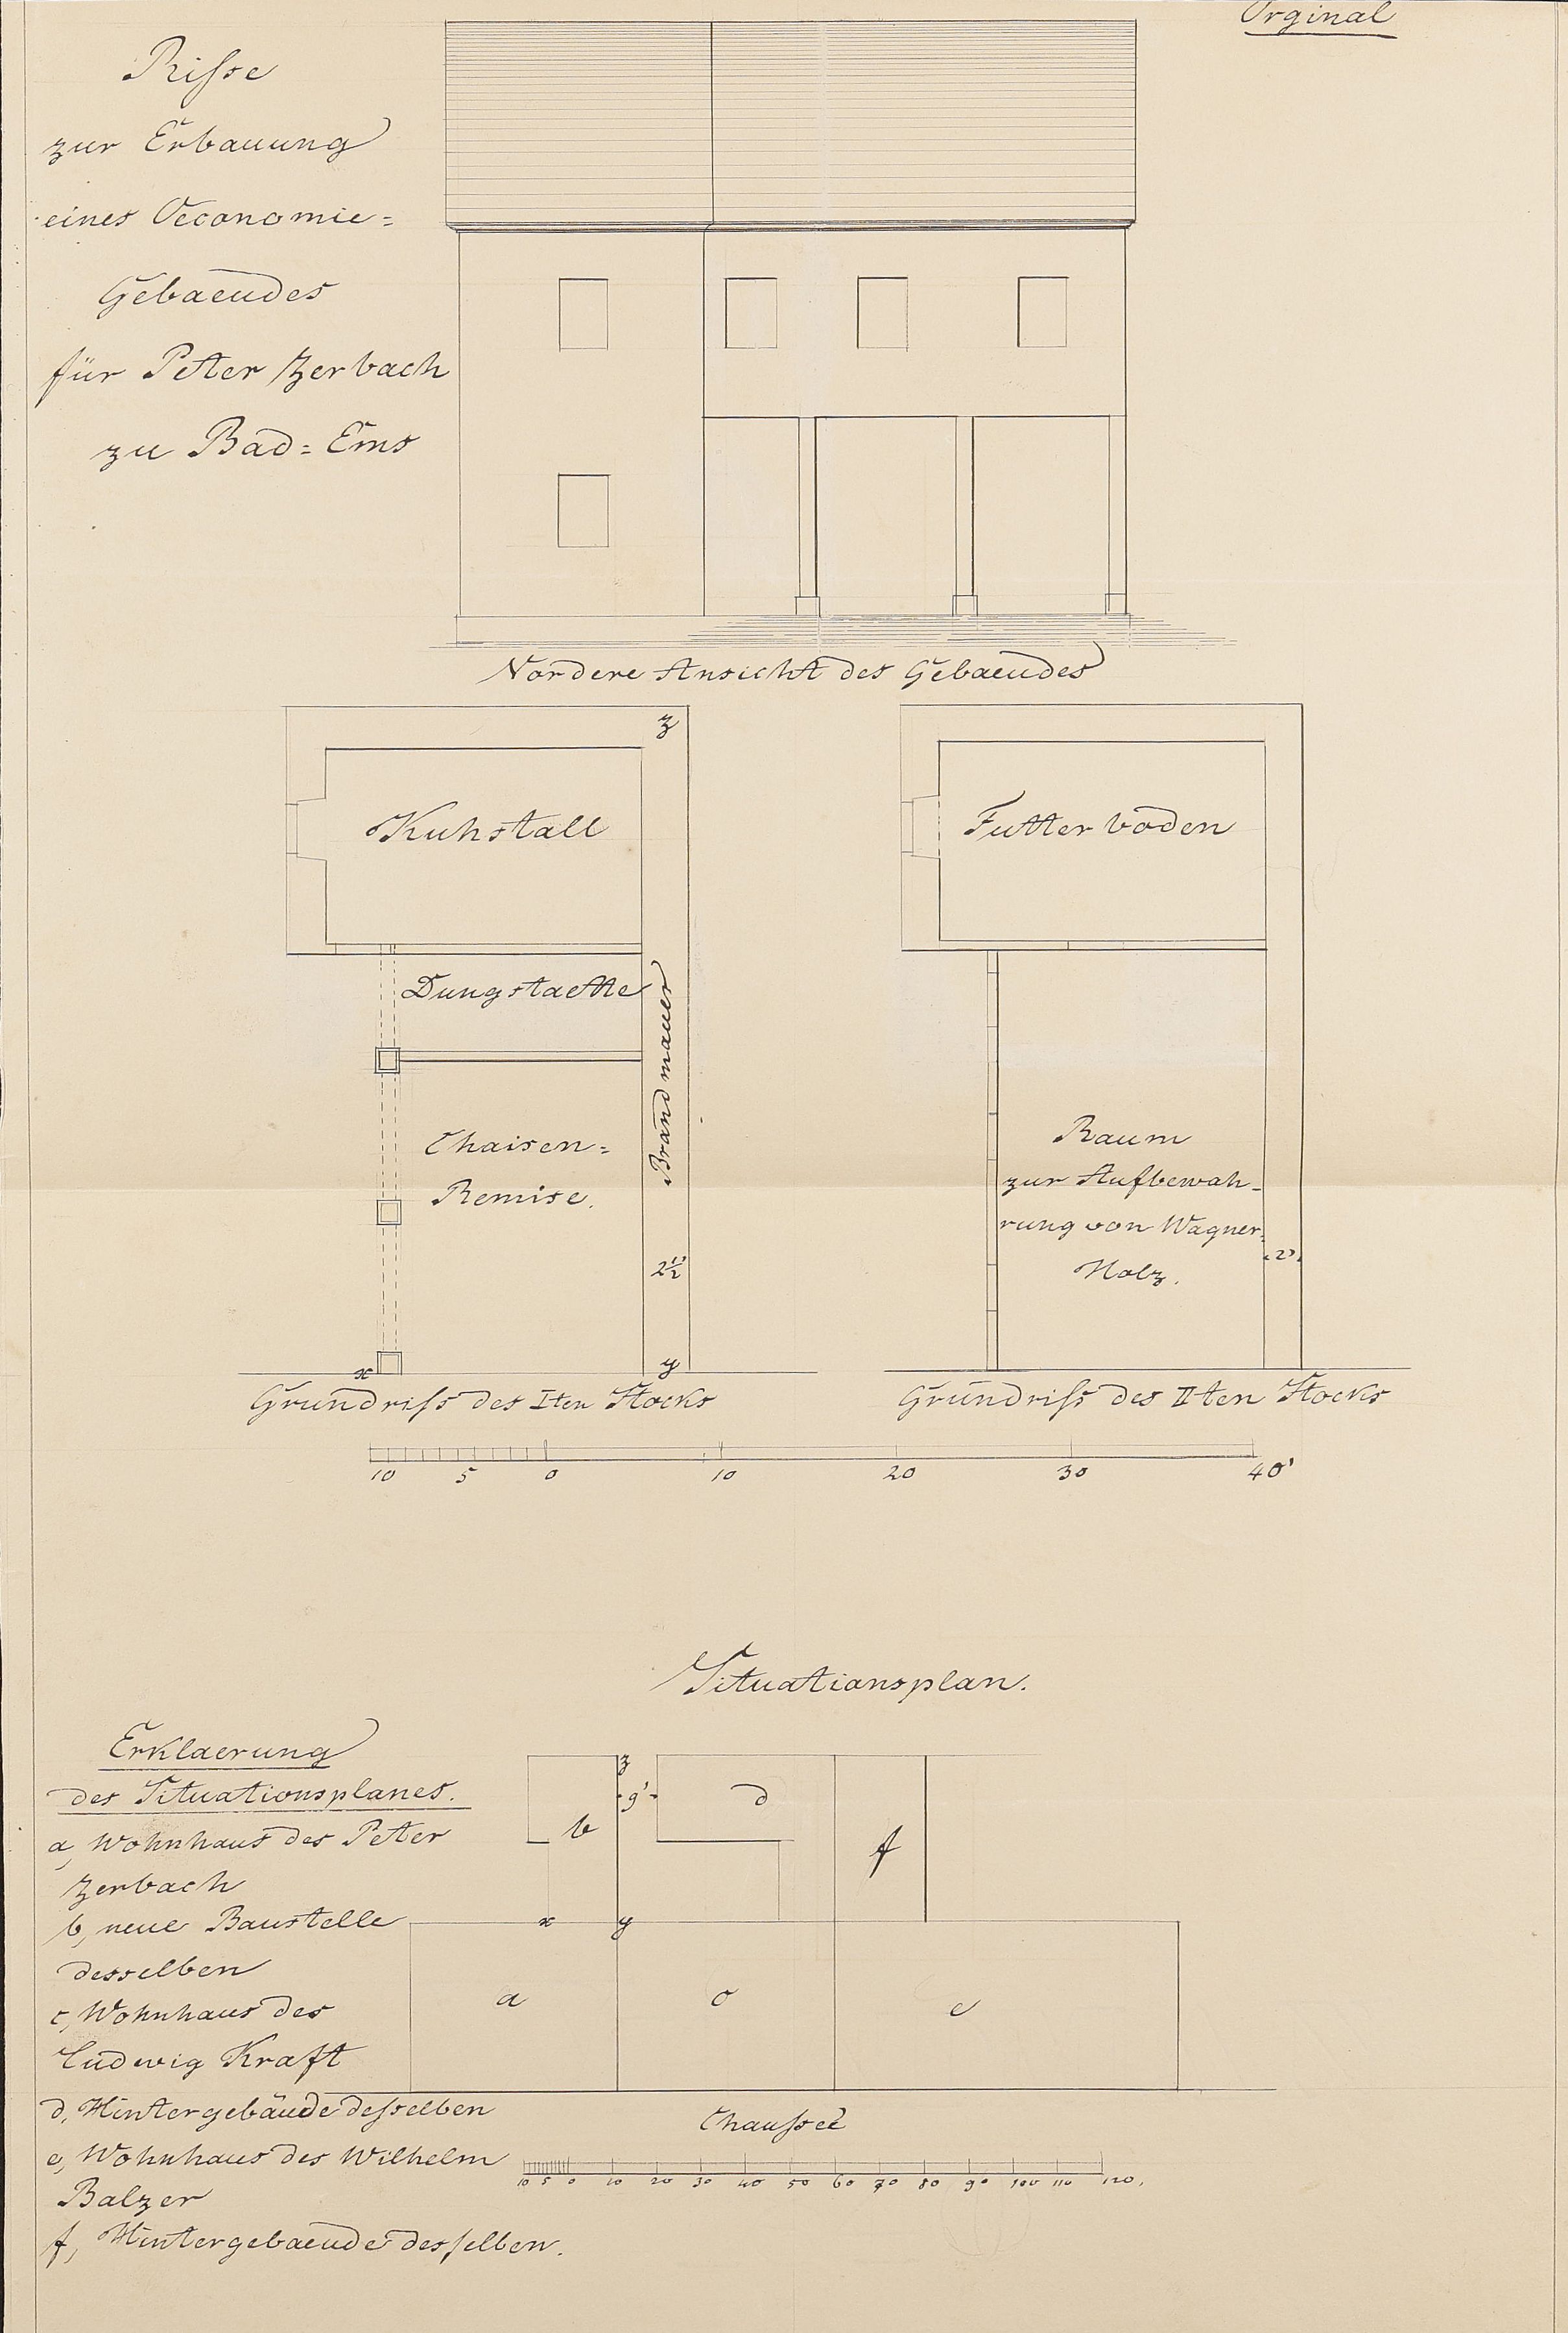 Orginal
Risse
zur Erbauung
eines Oeconomie=
Gebaeudes
für Peter Zerbach
zu Bad=Ems
Vordere Ansicht des Gebaeudes
z
Kuhstall
Dungstaette
Brandmauer
Chaisen=
Remise.
2½'
x
y
Grundriss des Iten Stocks
Futterboden
Raum
zur Aufbewah-
rung von Wagner-
Holz.
2'
Grundriss des IIten Stocks
10 5 0 10 20 30 40'
Situationsplan.
Erklaerung
des Situationsplanes.
a, Wohnhaus des Peter
Zerbach
b, neue Baustelle
desselben
c, Wohnhaus des
Ludwig Kraft
d, Hintergebäude desselben
e, Wohnhaus des Wilhelm
Balzer
f, Hintergebaeude desselben.
z
9'
d
b
f
x
y
a
c
e
Chaussee
10 5 0 10 20 30 40 50 60 70 80 90 100 110 120.